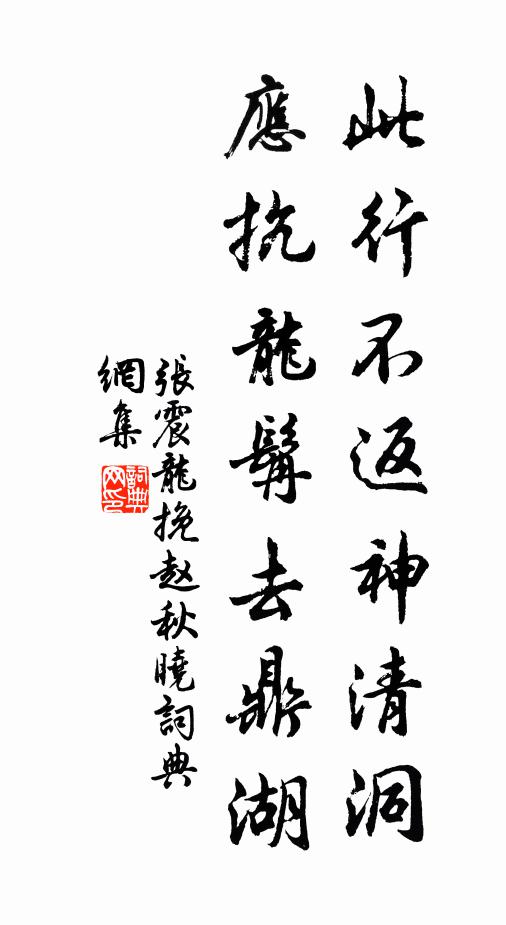 此行不返神清洞
應抗龍髯去鼎湖
張震龍挽赵秋曉詞典
網集
詞典
网印